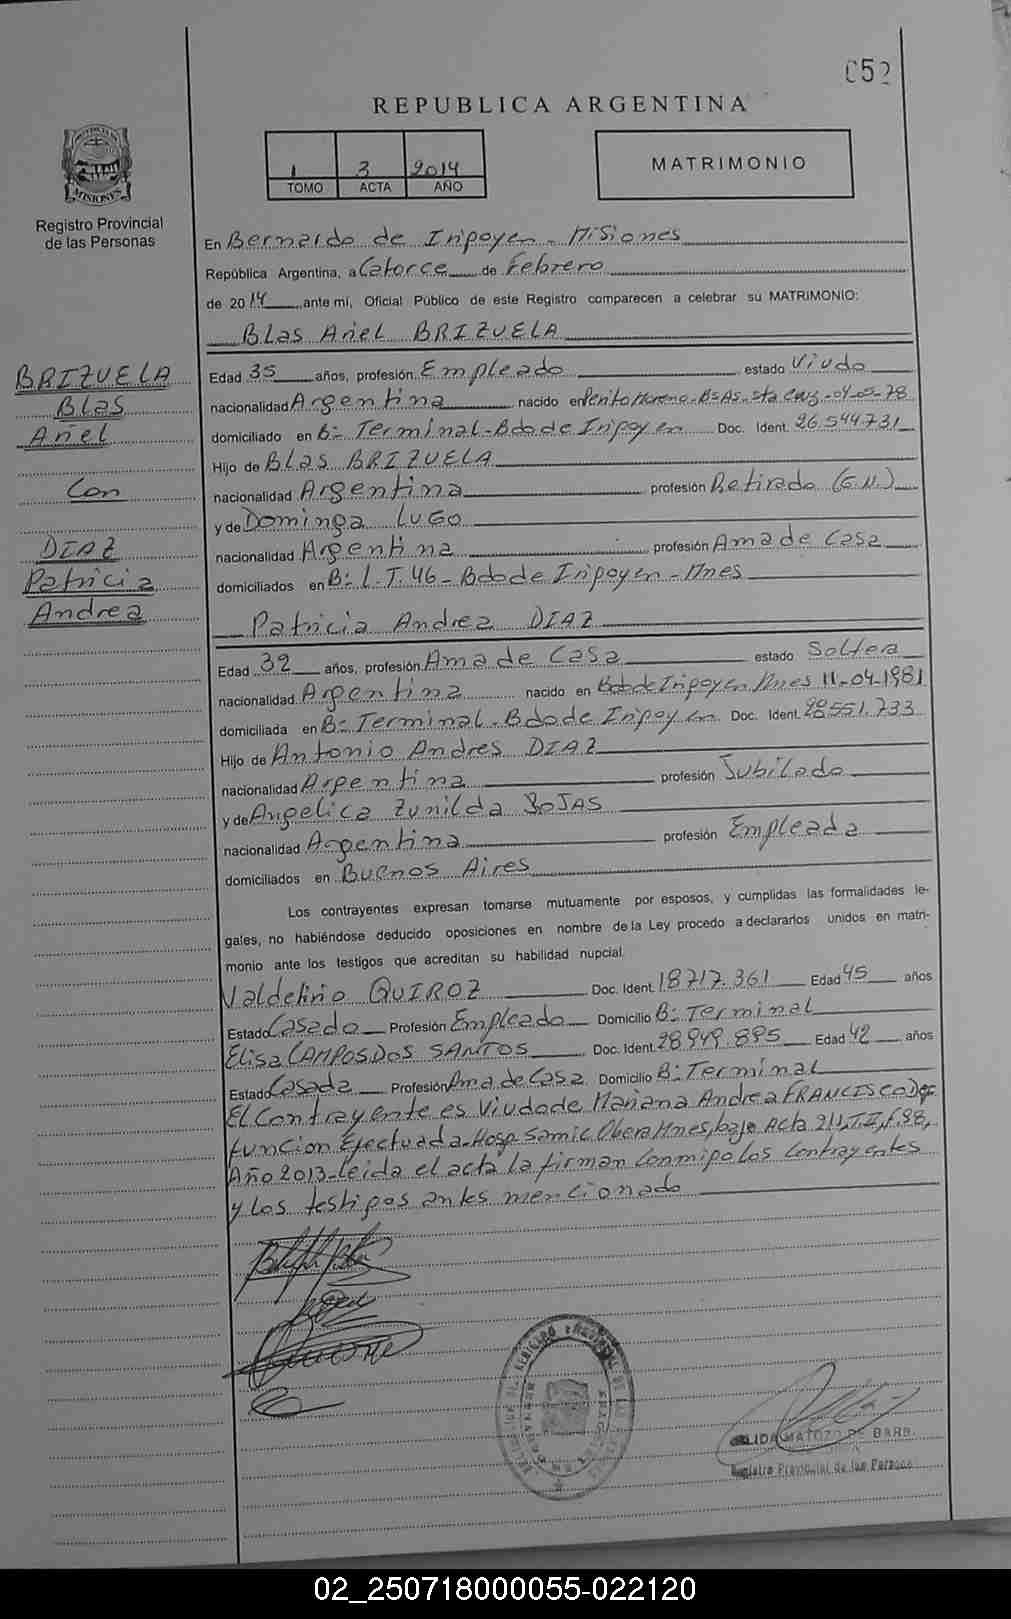 052
REPUBLICA ARGENTINA
1 3 2014
TOMO ACTA AÑO
MATRIMONIO
MISIONES
Registro Provincial
de las Personas
BRIZUELA
Blas
Ariel
Con
DIAZ
Patricia
Andrea
En Bernardo de Irigoyen - Misiones
República Argentina, a Catorce de Febrero
de 2014 ante mi, Oficial Público de este Registro comparecen a celebrar su MATRIMONIO:
Blas Ariel BRIZUELA
Edad 35 años, profesión Empleado estado Viudo
nacionalidad Argentina nacido en Perito Moreno - BsAs - Sta Cruz - 04-05-78
domiciliado en B: Terminal - Bdo de Irigoyen Doc. Ident. 26.544.731
Hijo de Blas BRIZUELA
nacionalidad Argentina profesión Retirado (G.N.)
y de Dominga LUGO
nacionalidad Argentina profesión Ama de Casa
domiciliados en B: L.T. 46 - Bdo de Irigoyen - Mnes
Patricia Andrea DIAZ
Edad 32 años, profesión Ama de Casa estado Soltera
nacionalidad Argentina nacido en Bdo de Irigoyen Mnes 11-04-1981
domiciliada en B: Terminal - Bdo de Irigoyen Doc. Ident. 28.551.733
Hijo de Antonio Andres DIAZ
nacionalidad Argentina profesión Jubilado
y de Angelica Zunilda ROJAS
nacionalidad Argentina profesión Empleada
domiciliados en Buenos Aires
Los contrayentes expresan tomarse mutuamente por esposos, y cumplidas las formalidades le-
gales, no habiéndose deducido oposiciones en nombre de la Ley procedo a declararlos unidos en matri-
monio ante los testigos que acreditan su habilidad nupcial.
Valdelirio QUIROZ Doc. Ident. 18717.361 Edad 45 años
Estado Casado Profesión Empleado Domicilio B: Terminal
Elisa CAMPOS DOS SANTOS Doc. Ident. 28.949.895 Edad 42 años
Estado Casada Profesión Ama de Casa Domicilio B: Terminal
El Contrayente es Viudo de Mariana Andrea FRANCISCO De-
funcion Efectuada - Hosp. Samic Obera Mnes, bajo Acta 211, T.II, f. 98,
Año 2013 - leida el acta la firman conmigo los contrayentes
y los testigos antes mencionado
MATOZO DE BARB.
Registro Provincial de las Personas
02_250718000055-022120